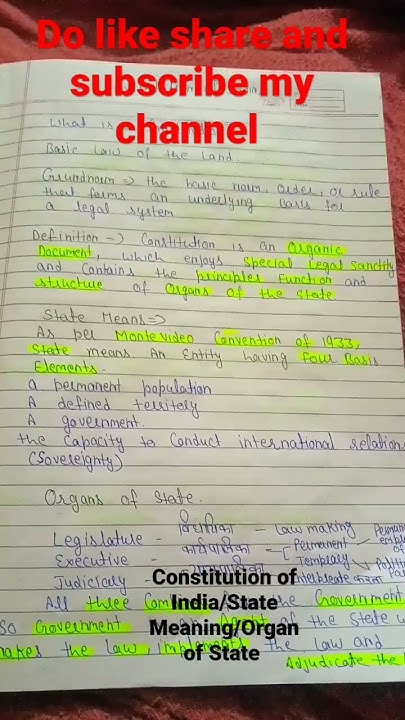 Do like share and
subscribe my
channel
What is
Basic Law of the Land.
Grundnorm => the basic norm, order, or rule
that forms an underlying basis for
a legal system
Definition -> Constitution is an Organic
Document, which enjoys special Legal Sanctity
and contains the principles Function and
structure of Organs of the State
State Means =>
As per Montevideo Convention of 1933,
State means An Entity having four Basis
Elements.
a permanent population
A defined territory
A government.
the Capacity to Conduct international relation
(Sovereignty)
Organs of State.
Legislature - विधायिका - Law making
Executive - कार्यपालिका - Permanent
Temporary
Judiciary -
Constitution of
India/State
Meaning/Organ
of State
All three the Government
So Government of the State
makes the Law implements the Law and
Adjudicate the